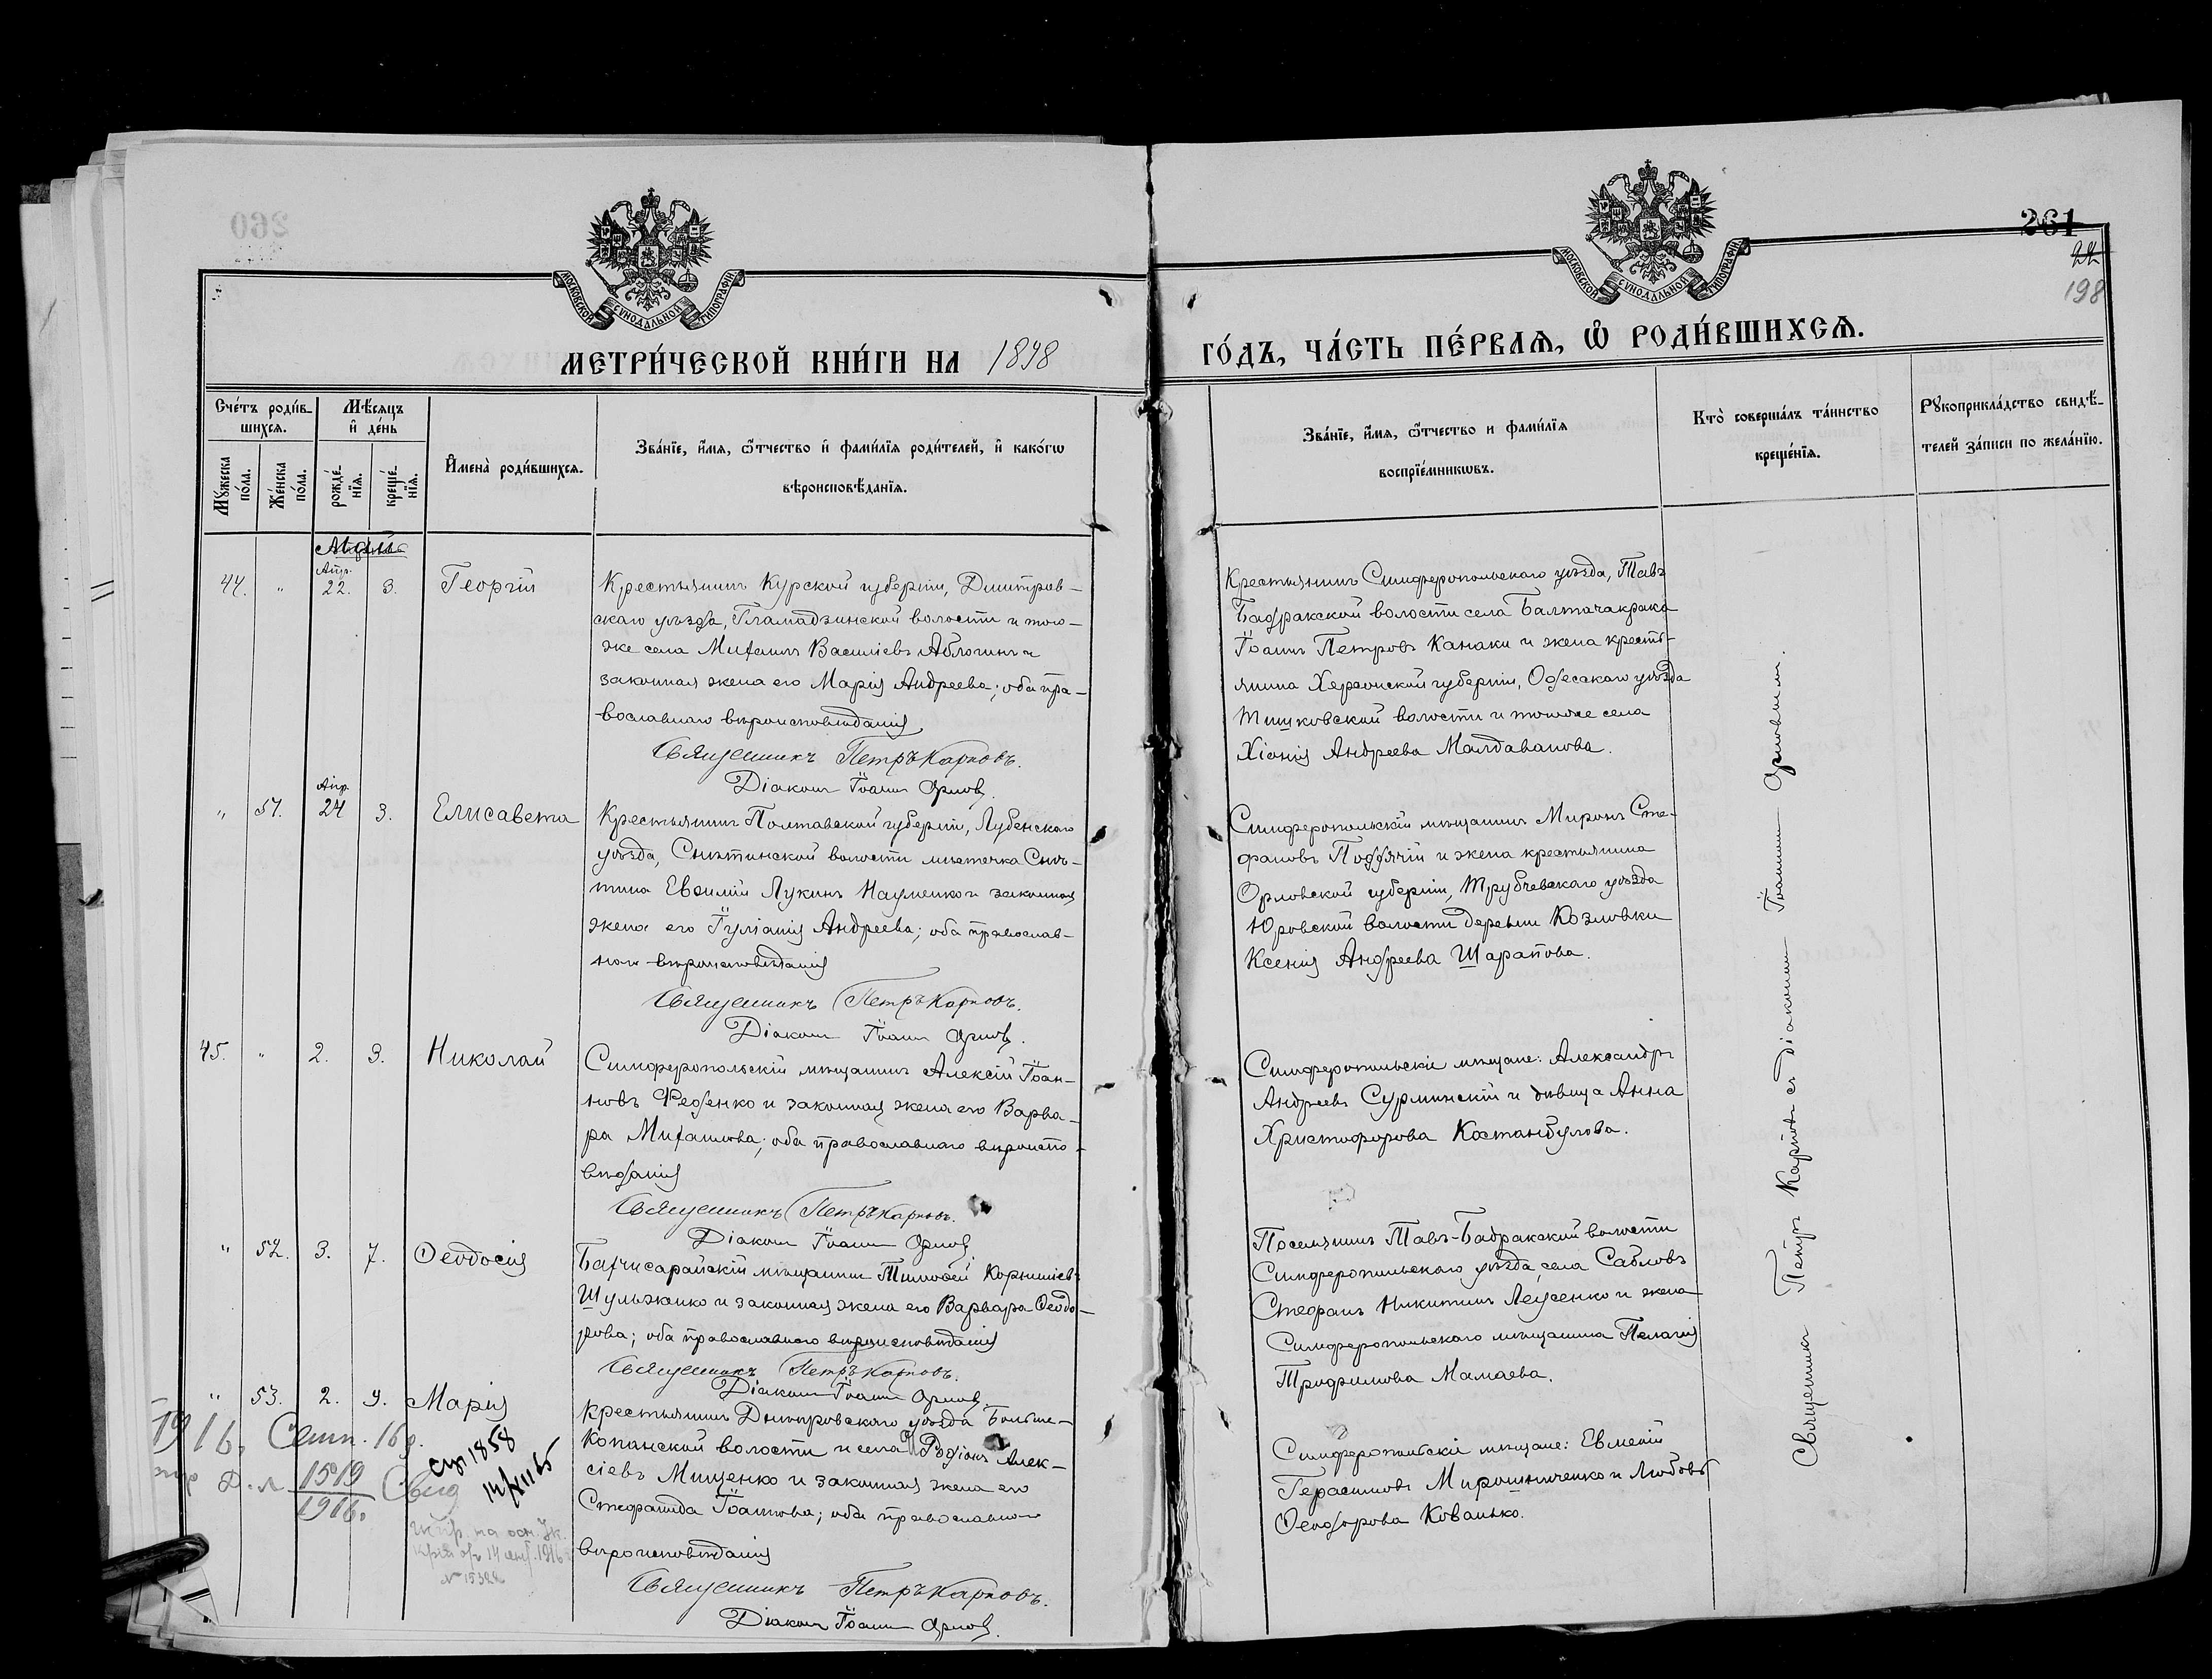 261
24
198
МОСКОВСКОЙ СѴНОДАЛЬНОЙ ТИПОГРАФІИ
МОСКОВСКОЙ СѴНОДАЛЬНОЙ ТИПОГРАФІИ
МЕТРИ́ЧЕСКОЙ КНИ́ГИ НА 1898
ГО́ДЪ, ЧА́СТЬ ПЕ́РВАѦ, Ѡ҆ РОДИ́ВШИХСѦ.
Сче́тъ роди́в-
шихсѧ.
Мꙋ́жеска по́ла.
Же́нска по́ла.
Мѣ́сяцъ и҆ де́нь
рожде́нїѧ.
креще́нїѧ.
И҆мена̀ роди́вшихсѧ.
Зва́нїе, и҆́мѧ, ѻ҆́тчество и҆ фами́лїѧ роди́телей, и҆ како́гѡ
вѣроисповѣ́данїѧ.
Зва́нїе, и҆́мѧ, ѻ҆́тчество и фами́лїѧ
воспрїе́мникѡвъ.
Кто̀ соверша́лъ та́инство
креще́нїѧ.
Рꙋкоприкла́дство свидѣ́-
телей за́писи по жела́нїю.
44. " Апр. 22. 3. Георгій
Крестьянинъ Курской губерніи, Дмитрев-
скаго уѣзда, Гламадзинской волости и того-
же села Михаилъ Василіевъ Аблогинъ и
законная жена его Марія Андреева; оба пра-
вославнаго вѣроисповѣданія
Священникъ Петръ Карповъ.
Діаконъ Іоаннъ Орловъ.
Крестьянинъ Симферопольскаго уѣзда, Тавъ
Бадракской волости села Балтачакрака
Іоаннъ Петровъ Канаки и жена кресть-
янина Херсонской губерніи, Одесскаго уѣзда
волости и тогоже села
Хіонія Андреева Малдаванова.
" 51. Апр. 24 3. Елисавета
Крестьянинъ Полтавской губерніи, Лубенскаго
уѣзда, Снѣтинской волости мѣстечка Снѣ-
тина Евѳимій Лукинъ Науменко и законная
жена его Іуліанія Андреева; оба православ-
наго вѣроисповѣданія
Священникъ Петръ Карповъ.
Діаконъ Іоаннъ Орловъ.
Симферопольскій мѣщанинъ Миронъ Сте-
фановъ Поддячій и жена крестьянина
Орловской губерніи, Трубчевскаго уѣзда
Юровской волости деревни Козловки
Ксенія Андреева Шарапова.
45. " 2. 3. Николай
Симферопольскій мѣщанинъ Алексій Іоан-
новъ Феденко и законная жена его Варва-
ра Михаилова; оба православнаго вѣроиспо-
вѣданія
Священникъ Петръ Карповъ.
Діаконъ Іоаннъ Орловъ
Симферопольскіе мѣщане: Александръ
Андреевъ Сурминскій и дѣвица Анна
Христофорова Костандулова.
" 52. 3. 7. Ѳеодосія
Бахчисарайскій мѣщанинъ Тимоѳей Корниліевъ
Шульженко и законная жена его Варвара Ѳеодо-
рова; оба православнаго вѣроисповѣданія
Священникъ Петръ Карповъ.
Діаконъ Іоаннъ Орловъ.
Поселянинъ Тавъ-Бадракской волости
Симферопольскаго уѣзда, села Сабловъ
Стефанъ Никитинъ Леценко и жена
Симферопольскаго мѣщанина Пелагія
Трофимова Мамаева.
" 53. 2. 9. Марія
Крестьянинъ Днѣпровскаго уѣзда Больше-
Копанской волости и села Родіонъ Алек-
сіевъ Мищенко и законная жена его
Стефанида Іоаннова; оба православнаго
вѣроисповѣданія
Священникъ Петръ Карповъ.
Діаконъ Іоаннъ Орловъ.
Симферопольскіе мѣщане: Евменій
Герасимовъ Мирошниченко и Любовь
Ѳеодорова Кованько.
Священникъ Петръ Карповъ съ діакономъ Іоанномъ Орловымъ.
1916. Сент. 16 д.
1519
1916.
1858